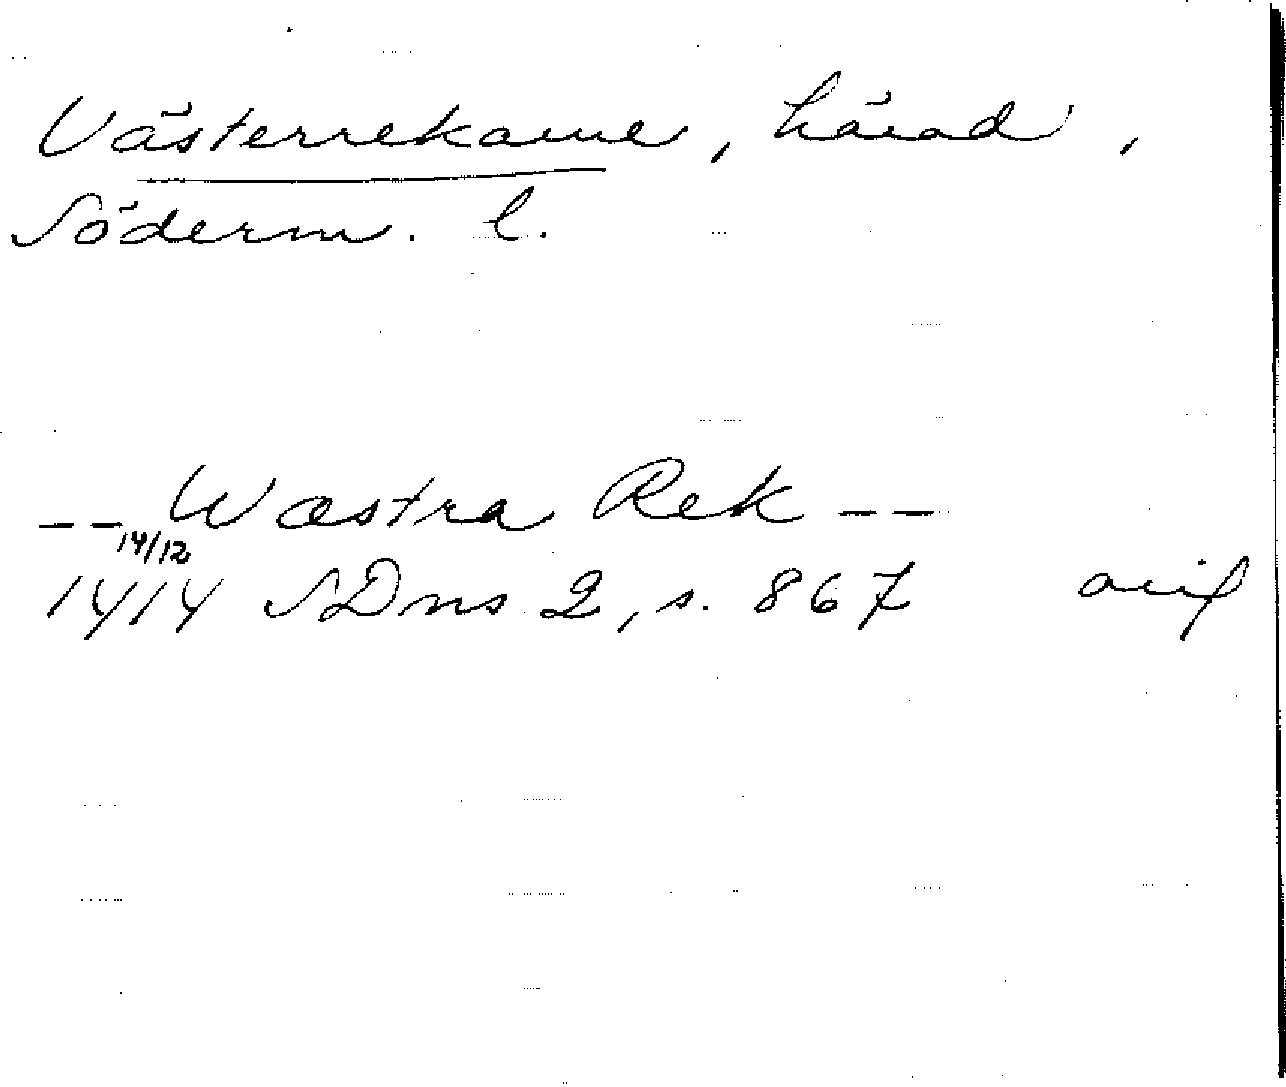 Västerrekarne, härad,
Söderm. l.
-- Wæstra Rek --
14/12
1414 SDns 2, s. 867 avskr